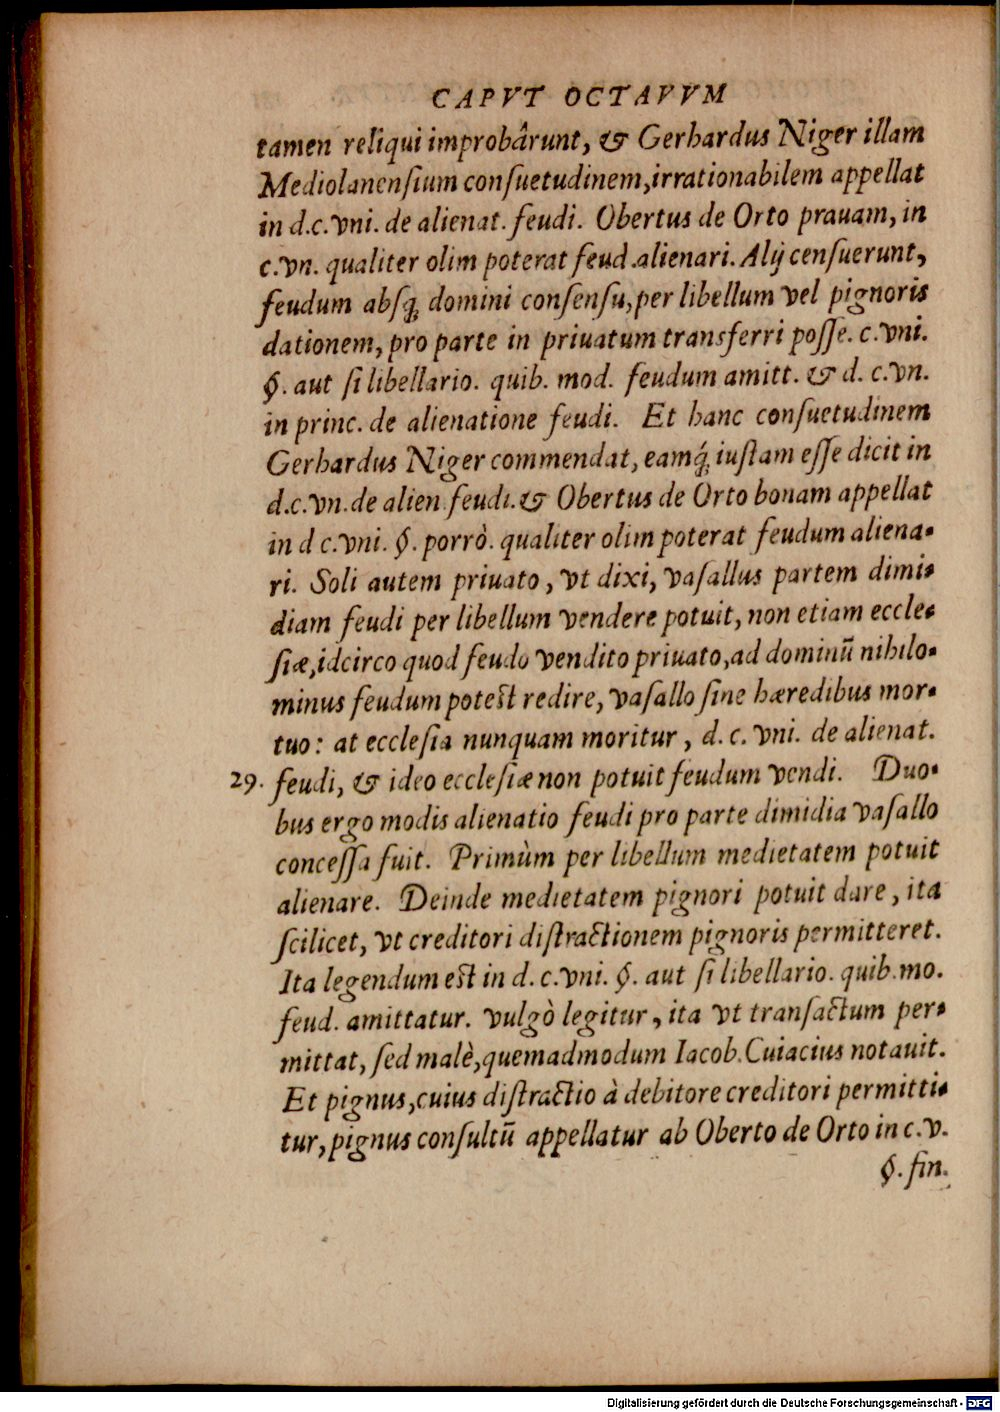 CAPVT OCTAVVM
tamen reliqui improbârunt, & Gerhardus Niger illam
Mediolanenſium conſuetudinem, irrationabilem appellat
in d.c.vni. de alienat. feudi. Obertus de Orto prauam, in
c.vn. qualiter olim poterat feud. alienari. Alij cenſuerunt,
feudum abſq; domini conſenſu, per libellum vel pignoris
dationem, pro parte in priuatum transferri poſſe. c.vni.
§. aut ſi libellario. quib. mod. feudum amitt. & d. c.vn.
in princ. de alienatione feudi. Et hanc conſuetudinem
Gerhardus Niger commendat, eamq́; iuſtam eſſe dicit in
d.c.vn. de alien. feudi. & Obertus de Orto bonam appellat
in d c.vni. §. porrò. qualiter olim poterat feudum aliena-
ri. Soli autem priuato, vt dixi, vaſallus partem dimi-
diam feudi per libellum vendere potuit, non etiam eccle-
ſiæ, idcirco quod feudo vendito priuato, ad dominū nihilo-
minus feudum poteſt redire, vaſallo ſine hæredibus mor-
tuo: at eccleſia nunquam moritur, d. c. vni. de alienat.
29. feudi, & ideo eccleſiæ non potuit feudum vendi. Duo-
bus ergo modis alienatio feudi pro parte dimidia vaſallo
conceſſa fuit. Primùm per libellum medietatem potuit
alienare. Deinde medietatem pignori potuit dare, ita
ſcilicet, vt creditori diſtractionem pignoris permitteret.
Ita legendum eſt in d. c.vni. §. aut ſi libellario. quib. mo.
feud. amittatur. vulgò legitur, ita vt transactum per-
mittat, ſed malè, quemadmodum Iacob. Cuiacius notauit.
Et pignus, cuius diſtractio à debitore creditori permitti-
tur, pignus conſultū appellatur ab Oberto de Orto in c.v.
§. fin.
Digitalisierung gefördert durch die Deutsche Forschungsgemeinschaft - DFG